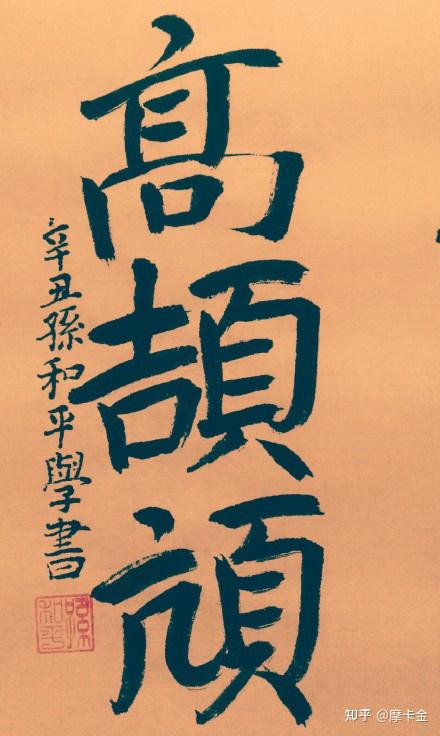 高頡頏
辛丑孫和平學書
孫和平
知乎 @摩卡金